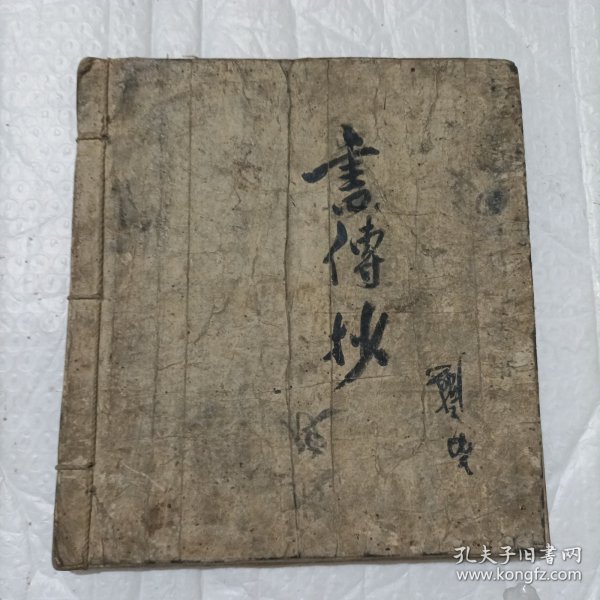 書傳抄
孔夫子旧书网
www.kongfz.com